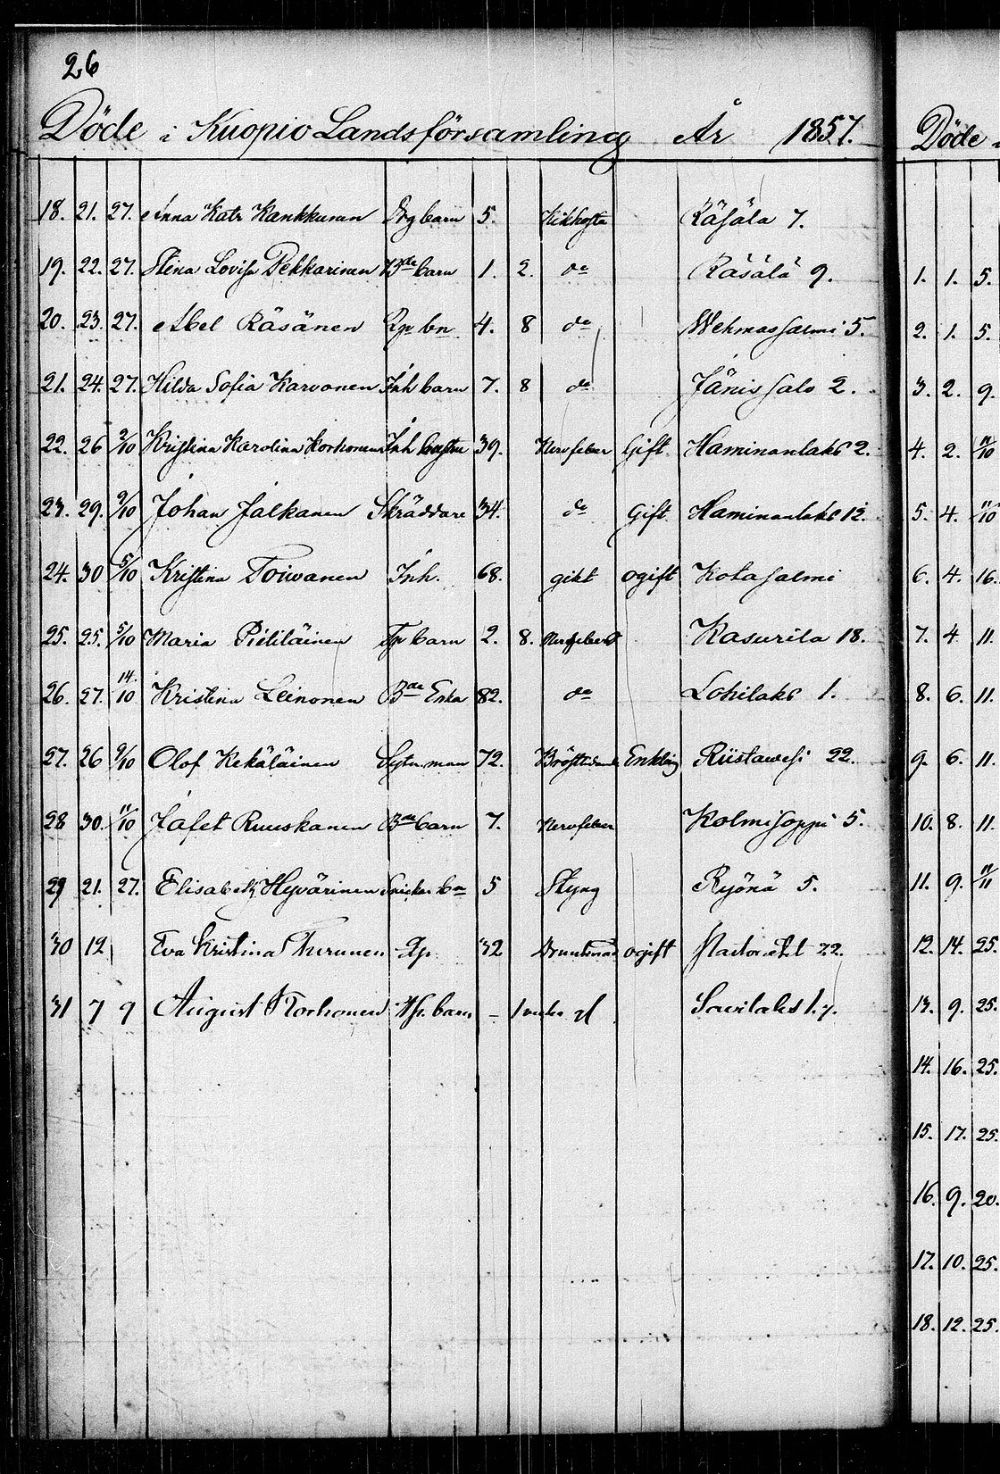 26
Döde i Kuopio Landsförsamling År 1857.
18. 21. 27. Anna Katr Kankkunen barn 5. Kikhosta Räsälä 7.
19. 22. 27. Stina Lovisa Pekkarinen Bde barn 1. 2. do Räsälä 9.
20. 23. 27. Abel Räsänen bn 4. 8 do Wehmassalmi 5.
21. 24. 27. Hilda Sofia Karvonen Inh barn 7. 8 do Jänissalo 2.
22. 26 2/10 Kristina Karolina Korhonen Inh hustru 39. Nervfeber Gift Haminanlaks 2.
23. 29. 2/10 Johan Jalkanen Skräddare 34. do Gift Haminanlaks 12.
24. 30 5/10 Kristina Toiwanen Inh. 68. gikt ogift Kotasalmi
25. 25. 5/10 Maria Pietiläinen barn 2. 8. Nervfeber Kasurila 18.
26. 27. 14/10 Kristina Leinonen Bde Enka 82. do Lohilaks 1.
27. 26 9/10 Olof Kekäläinen Sytn.man 72. Enkling Riistawesi 22.
28 30. 11/10 Jafet Ruuskanen Bde barn 7. Nervfeber Kolmisoppi 5.
29 21. 27. Elisabeth Hyvärinen bn 5 Styng Ryönä 5.
30 12 Eva Kristina 32 ogift 22.
31 7 9 August Korhonen barn - 1 Savilaks 17.
Döde
1. 1. 5.
2. 1. 5.
3. 2. 9.
4. 2. 11/10
5. 4. 11/10
6. 4. 16.
7. 4 11.
8. 6. 11.
9. 6. 11.
10. 8. 11.
11. 9.
12. 14. 25
13. 9. 25
14. 16. 25.
15. 17. 25.
16. 9. 20.
17. 10. 25.
18. 12. 25.